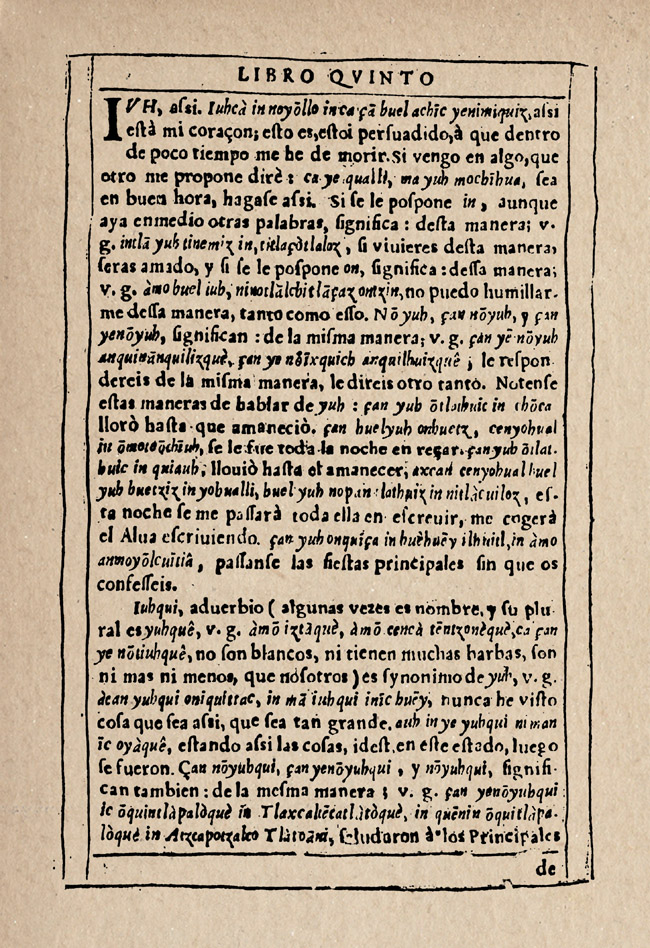 LIBRO QVINTO
IVH, assi. Iuhcà in noyōllo inca çā huel achīc yenimiquiz, assi
està mi coraçon; esto es, estoi persuadido, à que dentro
de poco tiempo me he de morir. Si vengo en algo, que
otro me propone dirè: ca ye qualli, ma yuh mochīhua, sea
en buen hora, hagase assi. Si se le pospone in, aunque
aya enmedio otras palabras, significa: desta manera; v.
g. intlā yuh tinemiz in, titlaçòtlaloz, si viuieres desta manera,
seras amado, y si se le pospone on, significa: dessa manera;
v. g. àmo huel iuh, no puedo humillar-
me dessa manera, tanto como esso. Nō yuh, çan nōyuh, y çan
yenōyuh, significan: de la misma manera; v. g. çan yē nōyuh
anquinānquilizquè, çan ye anquilhuizquê; le respon-
dereis de la misma manera, le direis otro tanto. Notense
estas maneras de hablar de yuh: çan yuh ōtlathuic in chōca
llorò hasta que amaneciò. çan huelyuh cenyohual
in se le fue toda la noche en reçar. çan yuh ōtlat-
huic in quiauh; llouiò hasta el amanecer; axcan cenyohual huel
yuh huetziz in yohualli, huel yuh nopan tlathuiz in nitlàcuiloz, es-
ta noche se me passarà toda ella en escreuir, me cogerà
el Alua escriuiendo. çan yuh onquiça in huēhuēy ilhuitl, in àmo
anmoyōlcuītiâ, passanse las fiestas principales sin que os
confesseis.
Iuhqui, aduerbio (algunas vezes es nombre, y su plu-
ral es yuhquê, v. g. àmō iztāquè, àmō cencà tēntzonèquè, ca çan
ye nōtiuhquê, no son blancos, ni tienen muchas barbas, son
ni mas ni menos, que nosotros) es synonimo de yuh, v. g.
àcan yuhqui oniquittac, in mā iuhqui inīc huēy, nunca he visto
cosa que sea assi, que sea tan grande. auh in ye yuhqui niman
īc oyàquê, estando assi las cosas, idest, en este estado, luego
se fueron. Çan nōyuhqui, çan yenōyuhqui, y nōyuhqui, signifi-
can tambien: de la mesma manera; v. g. çan yenōyuhqui
ic ōquintlàpalòquè in Tlaxcaltēcatlàtòquè, in quēnin ōquitlàpa-
lòquè in Atzcapotzalco Tlàtoāni, saludaron à los Principales
de